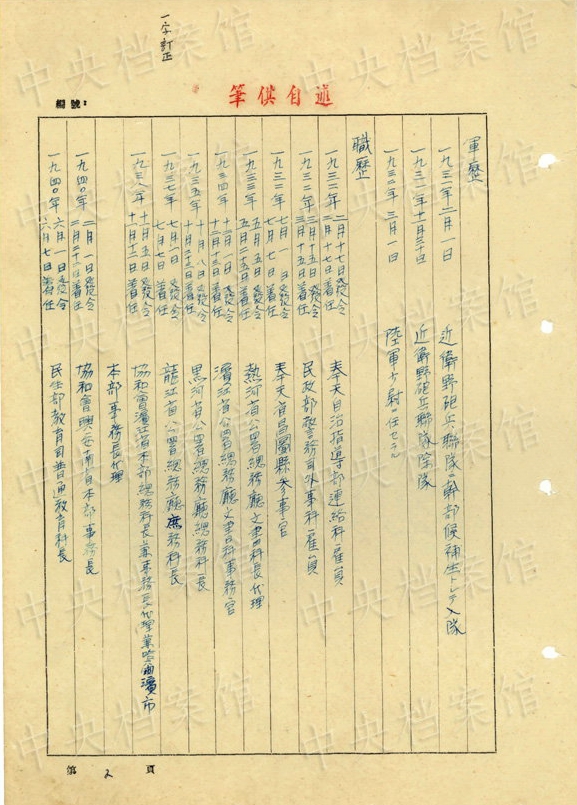 一字訂正
編號：
筆供自述
軍歷
一九三一年二月一日 近衛野砲兵聯隊幹部候補生トシテ入隊
一九三一年十一月三十日 近衛野砲兵聯隊除隊
一九三二年三月一日 陸軍少尉ニ任セラル
職歷
一九三二年 二月十七日發令 着任 奉天自治指導部連絡科雇員
一九三二年 三月十五日發令 着任 民政部警務司外事科雇員
一九三二年 七月一日發令 着任 奉天省昌圖縣參事官
一九三三年 五月五日發令 五月二十五日着任 熱河省公署總務廳文書科長代理
一九三四年 十二月一日發令 着任 濱江省公署總務廳文書科事務官
一九三五年 十月八日發令 着任 黑河省公署總務廳總務科長
一九三七年 七月一日發令 七月七日着任 龍江省公署總務廳庶務科長
一九三八年 十一月五日發令 十一月十二日着任 協和會濱江省本部總務科長兼事務長代理兼哈爾濱市
本部事務長代理
一九四〇年 二月一日發令 着任 協和會興安南省本部事務長
一九四〇年 六月一日發令 六月七日着任 民生部教育司普通教育科長
第 2 頁
中央档案馆